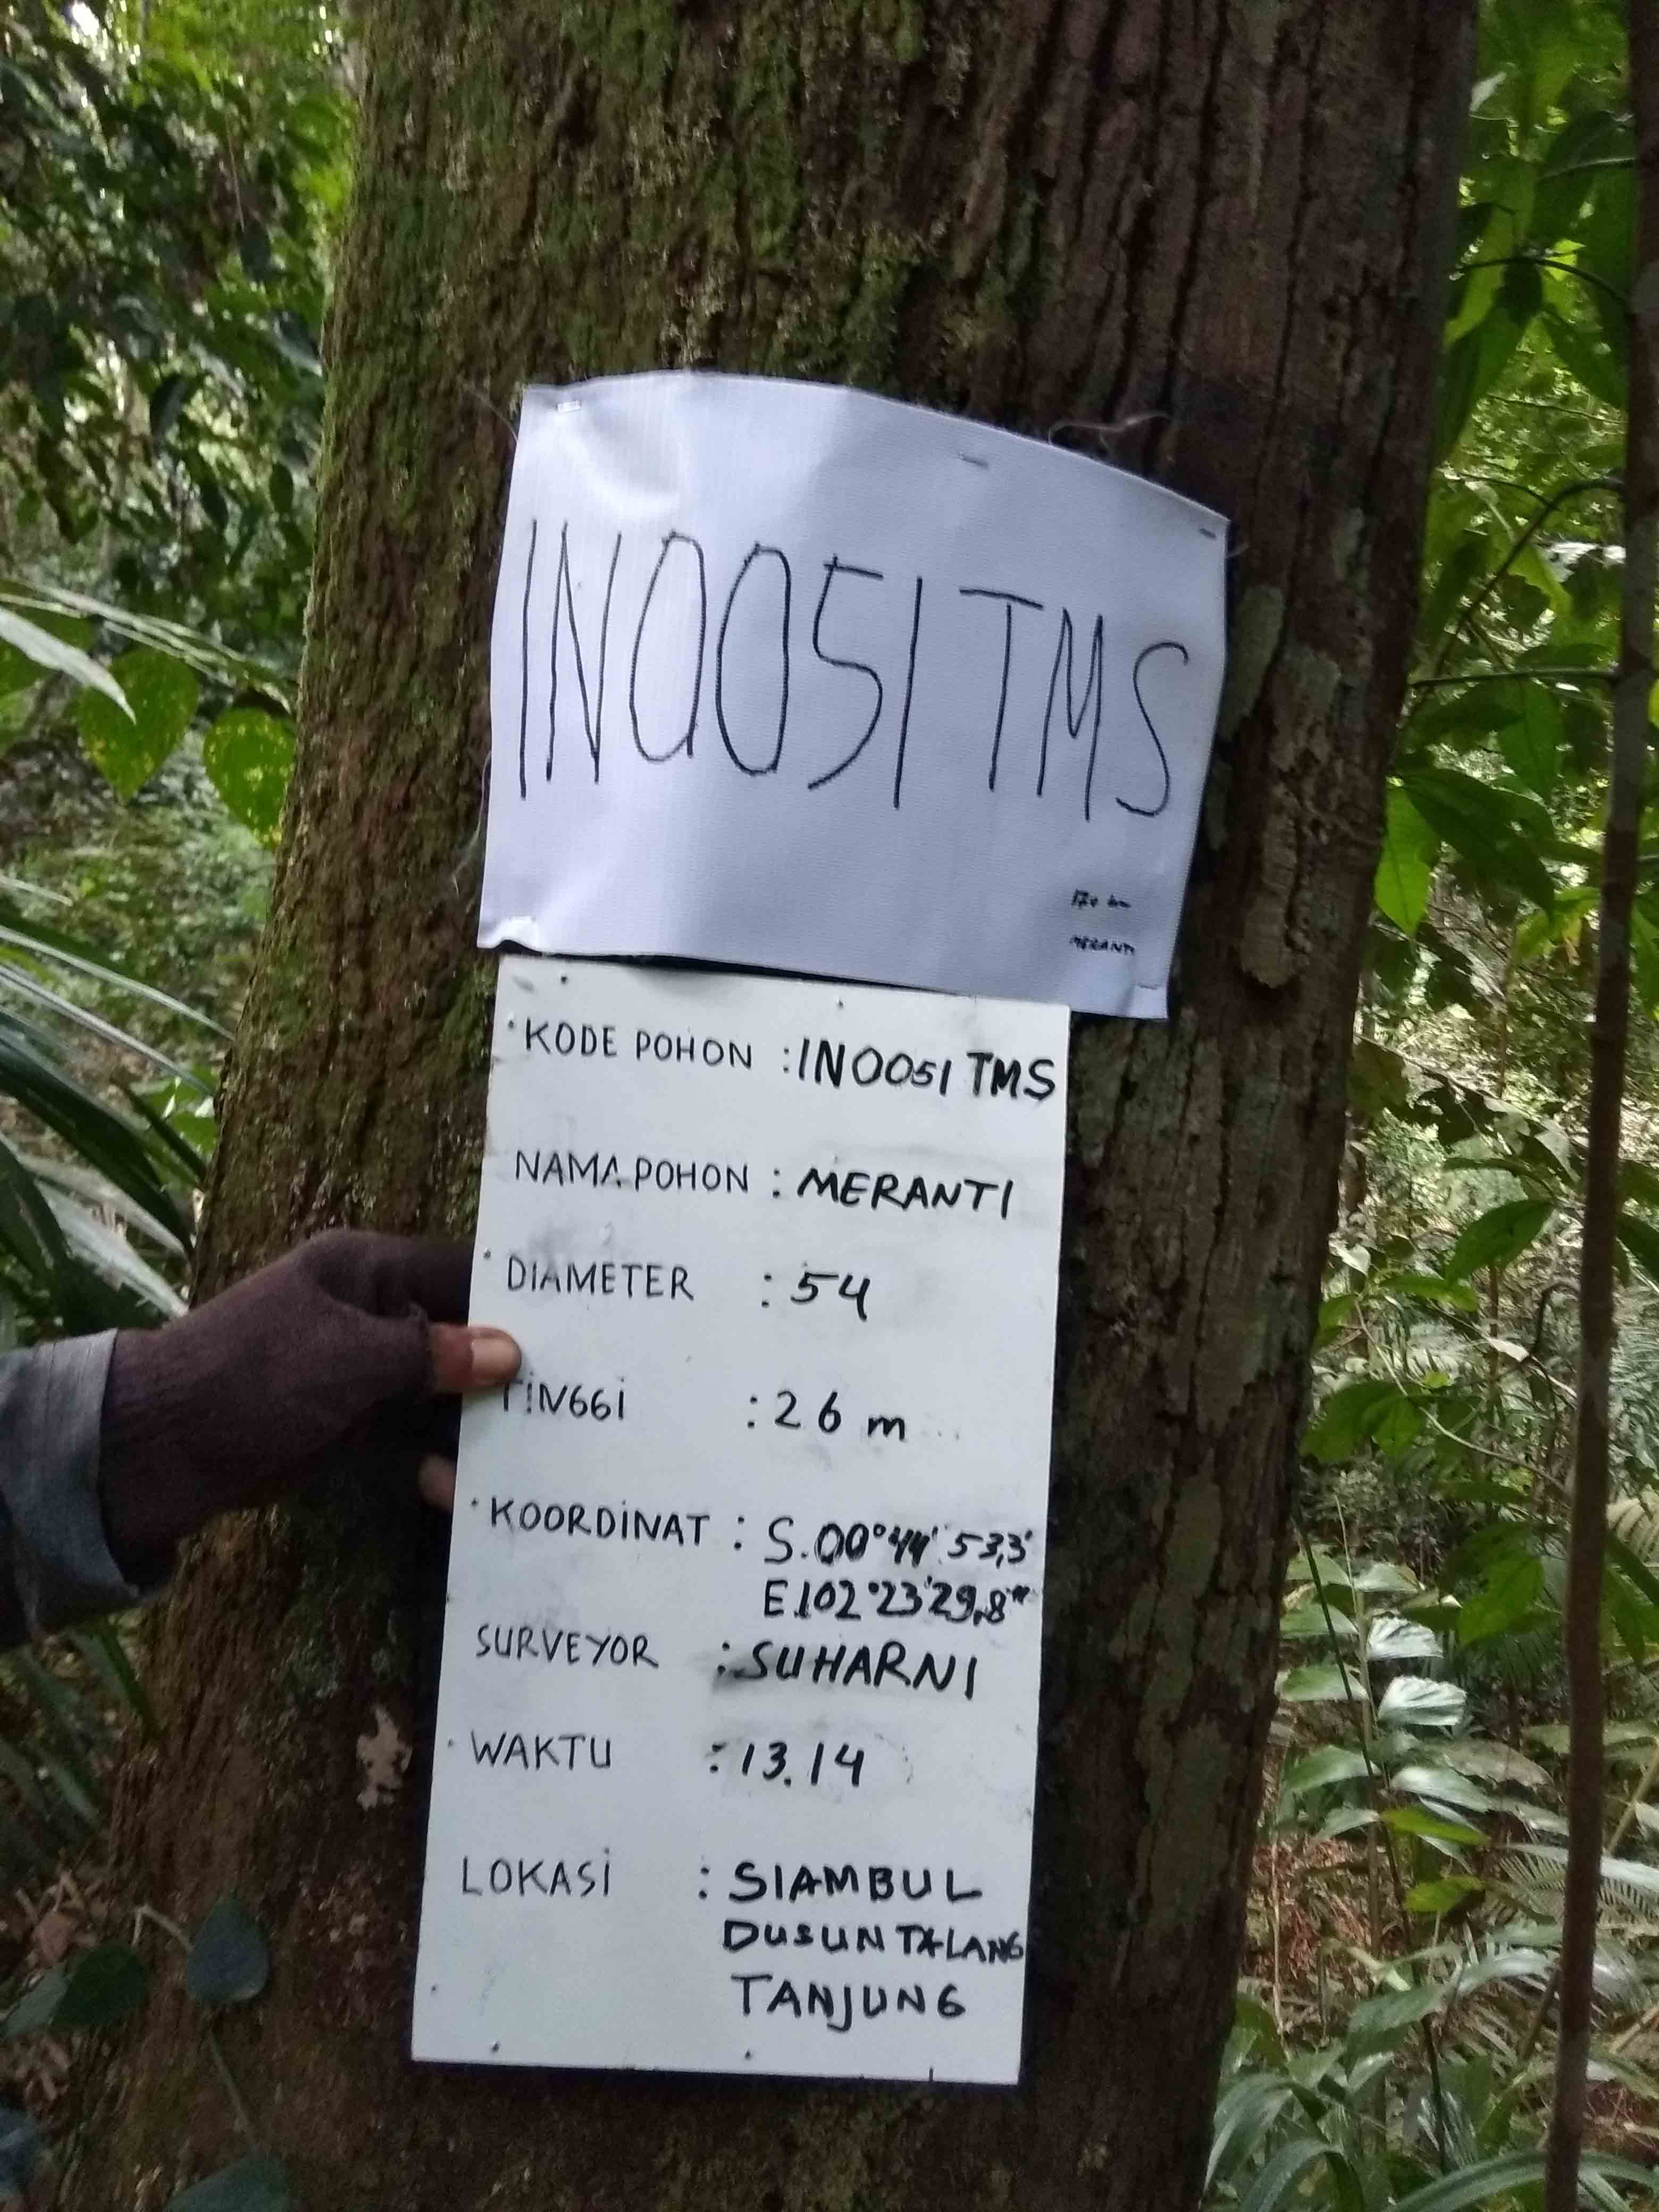 IN0051 TMS
170 cm
MERANTI
KODE POHON : IN0051 TMS
NAMA POHON : MERANTI
DIAMETER : 54
TINGGI : 26 m
KOORDINAT : S.00°44' 53,3'
E.102°23'29,8"
SURVEYOR : SUHARNI
WAKTU : 13.14
LOKASI : SIAMBUL
DUSUN TALANG
TANJUNG